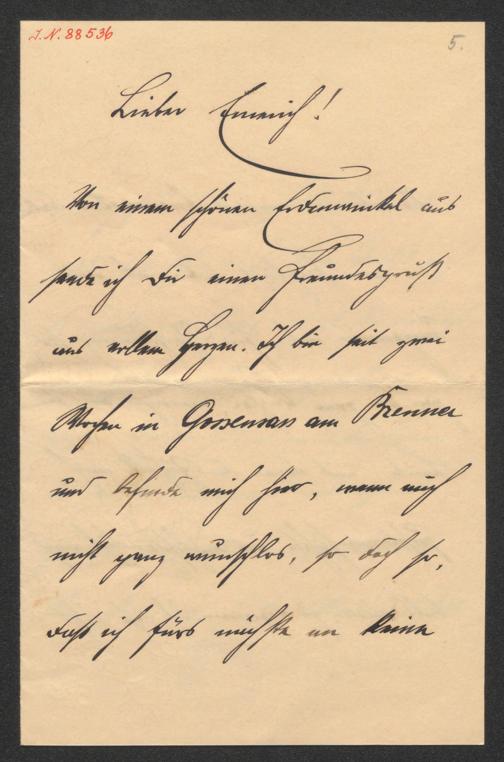 J.N. 88536
5.
Lieber Emerich!
Von einem schönen Erdenwinkel aus
sende ich Dir einen Freundesgruß
aus vollem Herzen. Ich bin seit zwei
Wochen in Gossensass am Brenner
und befinde mich hier, wenn auch
nicht ganz wunschlos, so doch so,
daß ich fürs nächste an keine